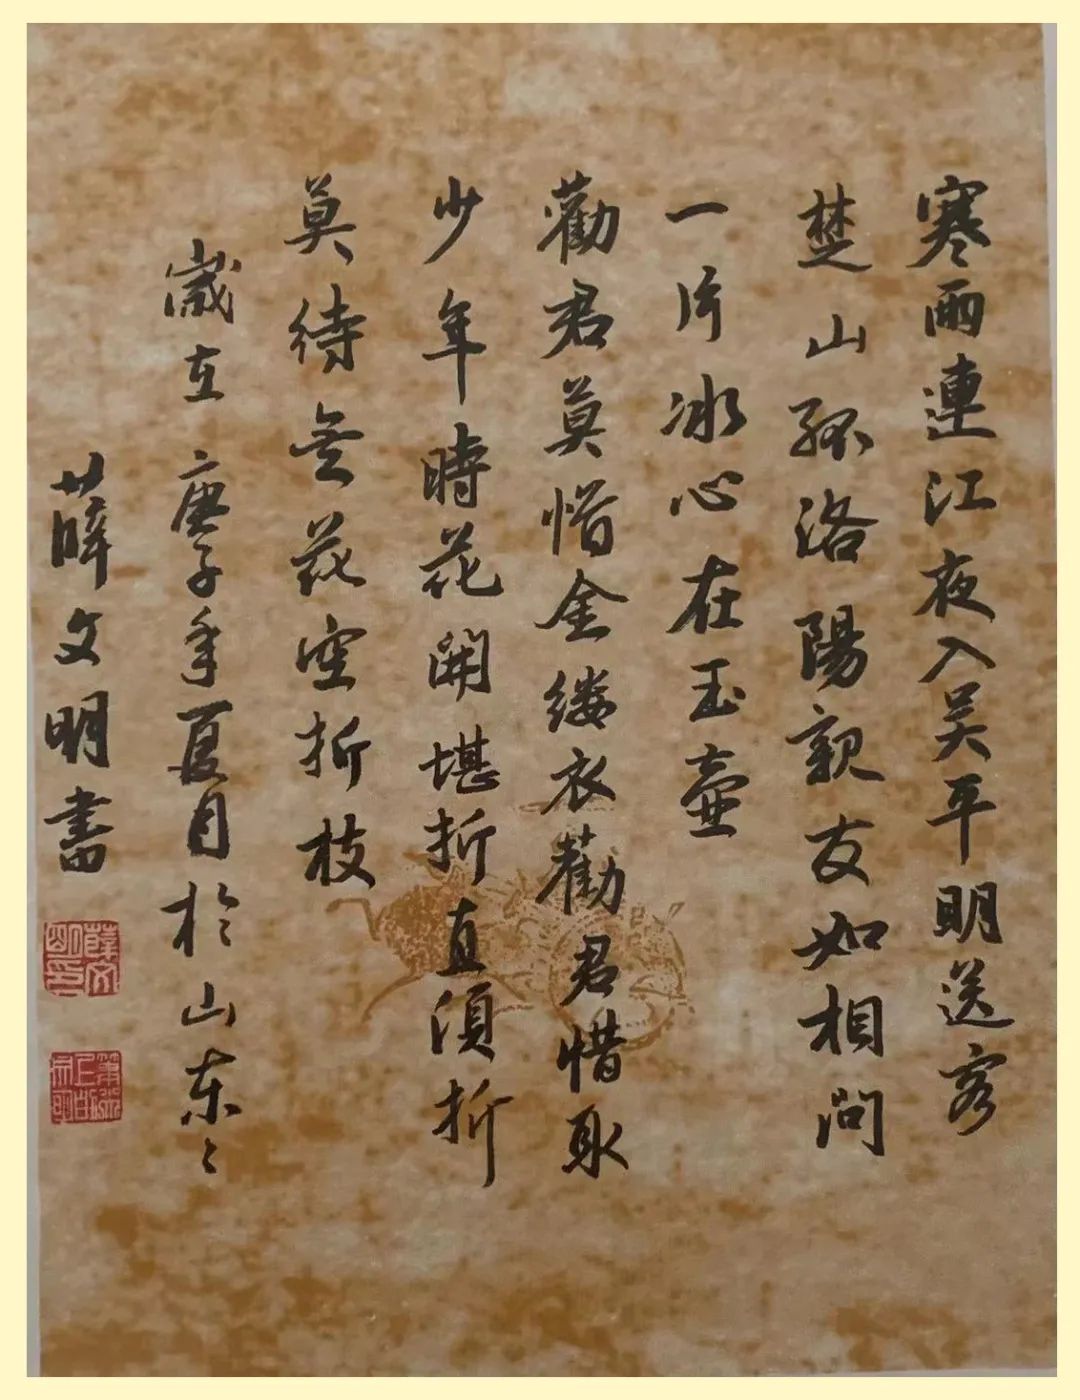 寒雨連江夜入吴平明送客
楚山孤洛陽親友如相問
一片冰心在玉壺
勸君莫惜金缕衣勸君惜取
少年時花開堪折直須折
莫待無花空折枝
歲在庚子年夏月於山东
薛文明書
薛文明印